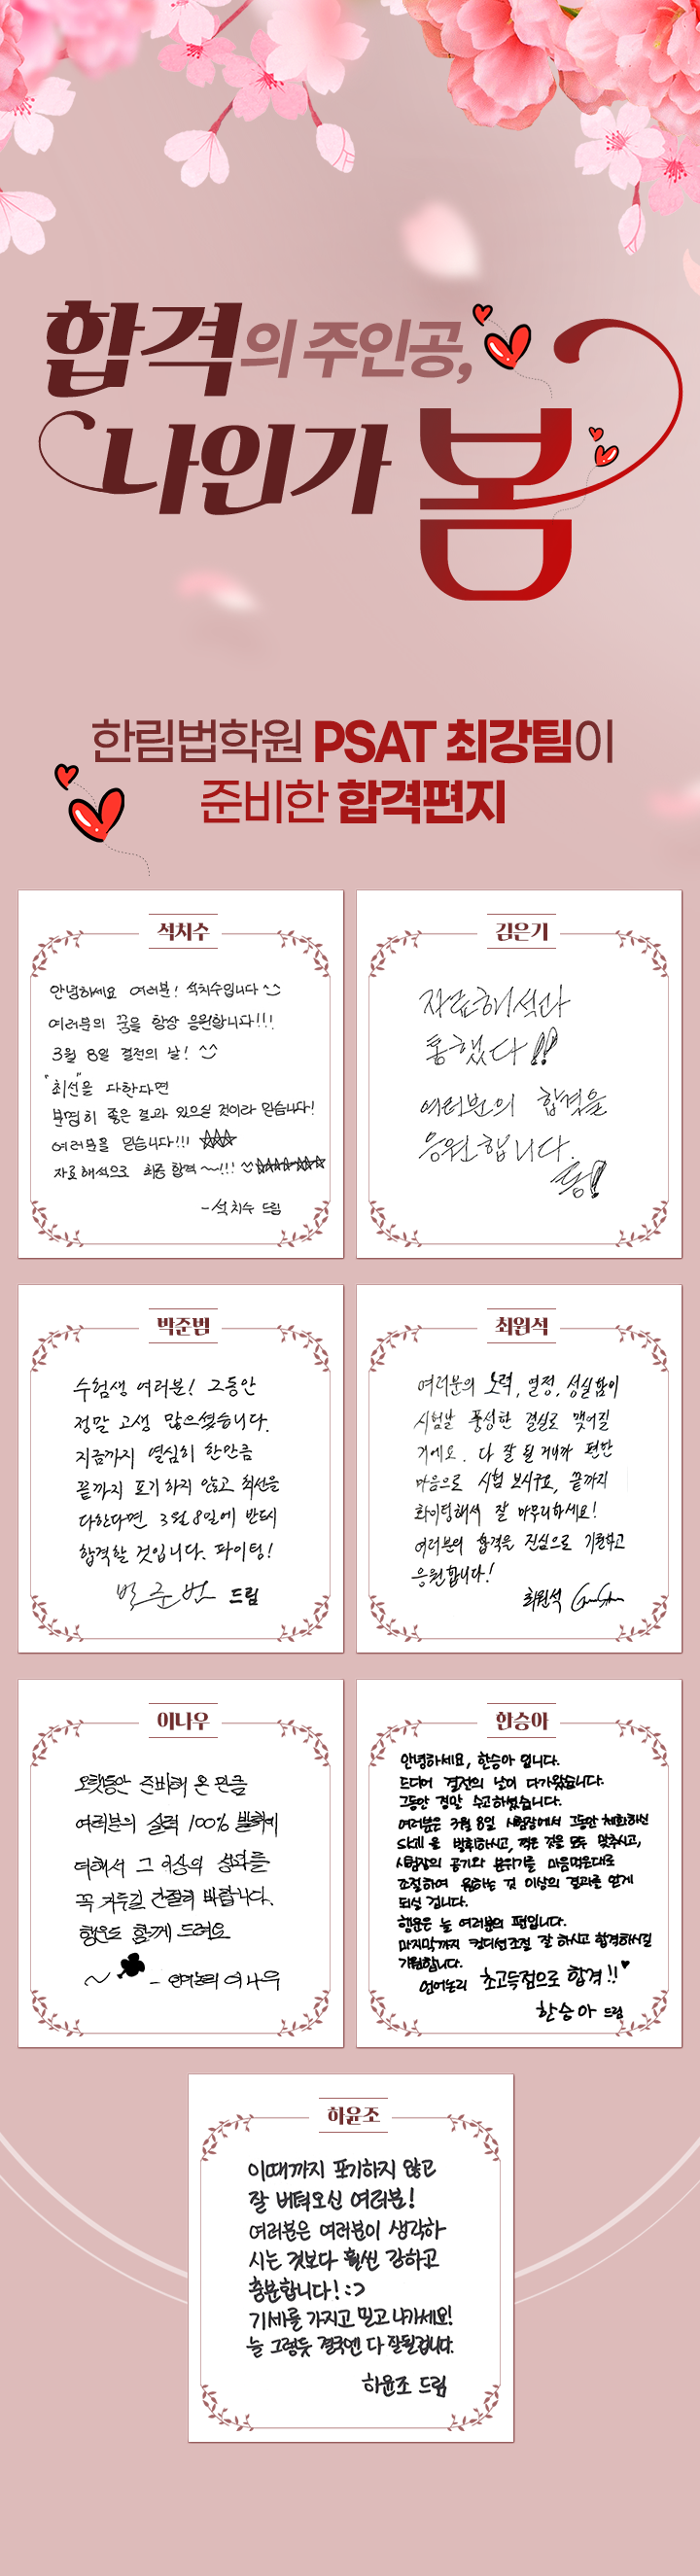 합격의 주인공,
나인가 봄
한림법학원 PSAT 최강팀이
준비한 합격편지
석치수
안녕하세요 여러분! 석치수입니다 ^^
여러분의 꿈을 항상 응원합니다!!!
3월 8일 결전의 날! ^^
"최선"을 다한다면
분명히 좋은 결과 있으실 것이라 믿습니다!
여러분을 믿습니다!!! ☆☆☆
자료해석으로 최종 합격~!!!
-석치수 드림
김은기
자료해석과
통했다!!
여러분의 합격을
응원합니다.
통!
박준범
수험생 여러분! 그동안
정말 고생 많으셨습니다.
지금까지 열심히 한만큼
끝까지 포기하지 않고 최선을
다한다면 3월 8일에 반드시
합격할 것입니다. 파이팅!
박준범 드림
최원석
여러분의 노력, 열정, 성실함이
시험날 풍성한 결실로 맺어질
거에요. 다 잘 될 거니까 편한
마음으로 시험 보시구요, 끝까지
화이팅해서 잘 마무리하세요!
여러분의 합격을 진심으로 기원하고
응원합니다!
최원석
이나우
오랫동안 준비해 온 만큼
여러분의 실력 100% 발휘에
더해서 그 이상의 성과를
꼭 거두길 간절히 바랍니다.
행운도 함께 드려요
~ - 언어논리 이나우
한승아
안녕하세요, 한승아 입니다.
드디어 결전의 날이 다가왔습니다.
그동안 정말 수고하셨습니다.
여러분은 3월 8일 시험장에서 그동안 체화하신
skill 을 발휘하시고, 찍은 것을 모두 맞추시고,
시험장의 공기와 분위기를 마음먹은대로
조절하여 원하는 것 이상의 결과를 얻게
되실 겁니다.
행운은 늘 여러분의 편입니다.
마지막까지 컨디션조절 잘 하시고 합격하시길
기원합니다.
언어논리 초고득점으로 합격!!♥
한승아 드림
하윤조
이때까지 포기하지 않고
잘 버텨오신 여러분!
여러분은 여러분이 생각하
시는 것보다 훨씬 강하고
충분합니다! :)
기세를 가지고 믿고 나가세요!
늘 그렇듯 결국엔 다 잘될겁니다.
하윤조 드림